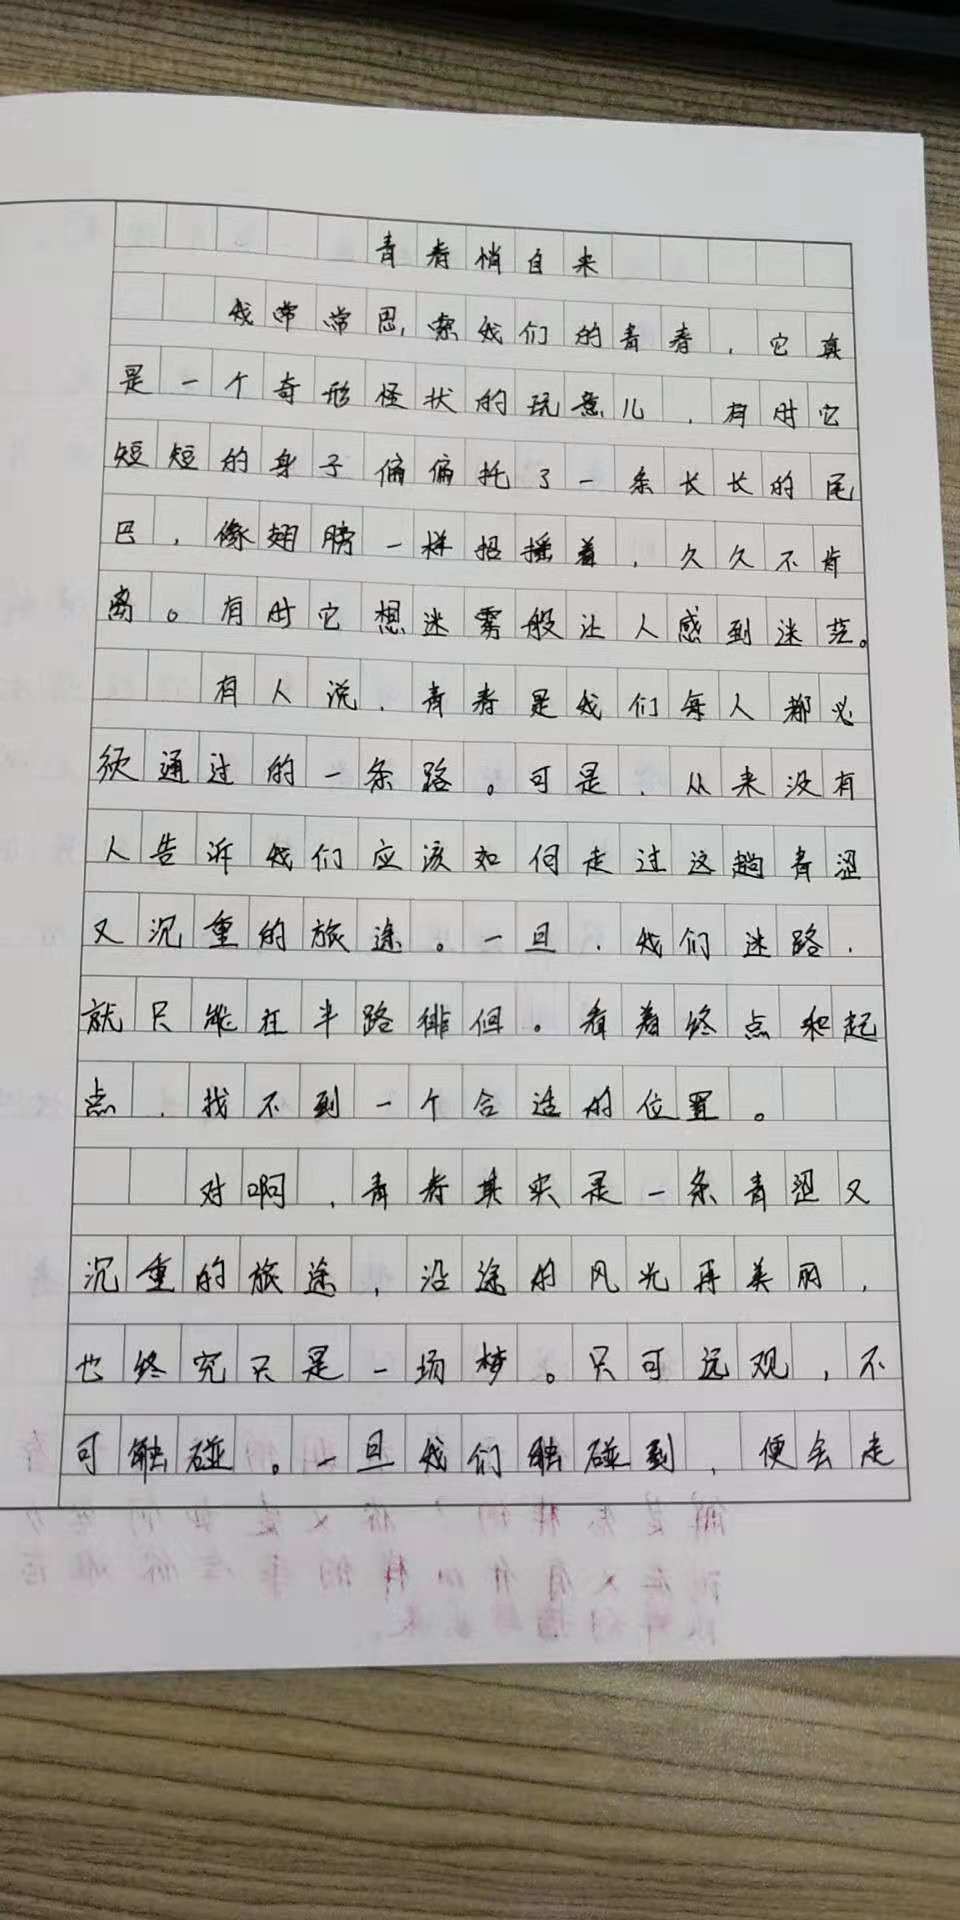 青春悄自来
我常常思索我们的青春，它真
是一个奇形怪状的玩意儿，有时它
短短的身子偏偏托了一条长长的尾
巴，像翅膀一样招摇着，久久不肯
离。有时它想迷雾般让人感到迷茫。
有人说，青春是我们每人都必
须通过的一条路。可是，从来没有
人告诉我们应该如何走过这趟青涩
又沉重的旅途。一旦，我们迷路，
就只能在半路徘徊。看着终点和起
点，找不到一个合适的位置。
对啊，青春其实是一条青涩又
沉重的旅途，沿途的风光再美丽，
也终究只是一场梦。只可远观，不
可触碰。一旦我们触碰到，便会走